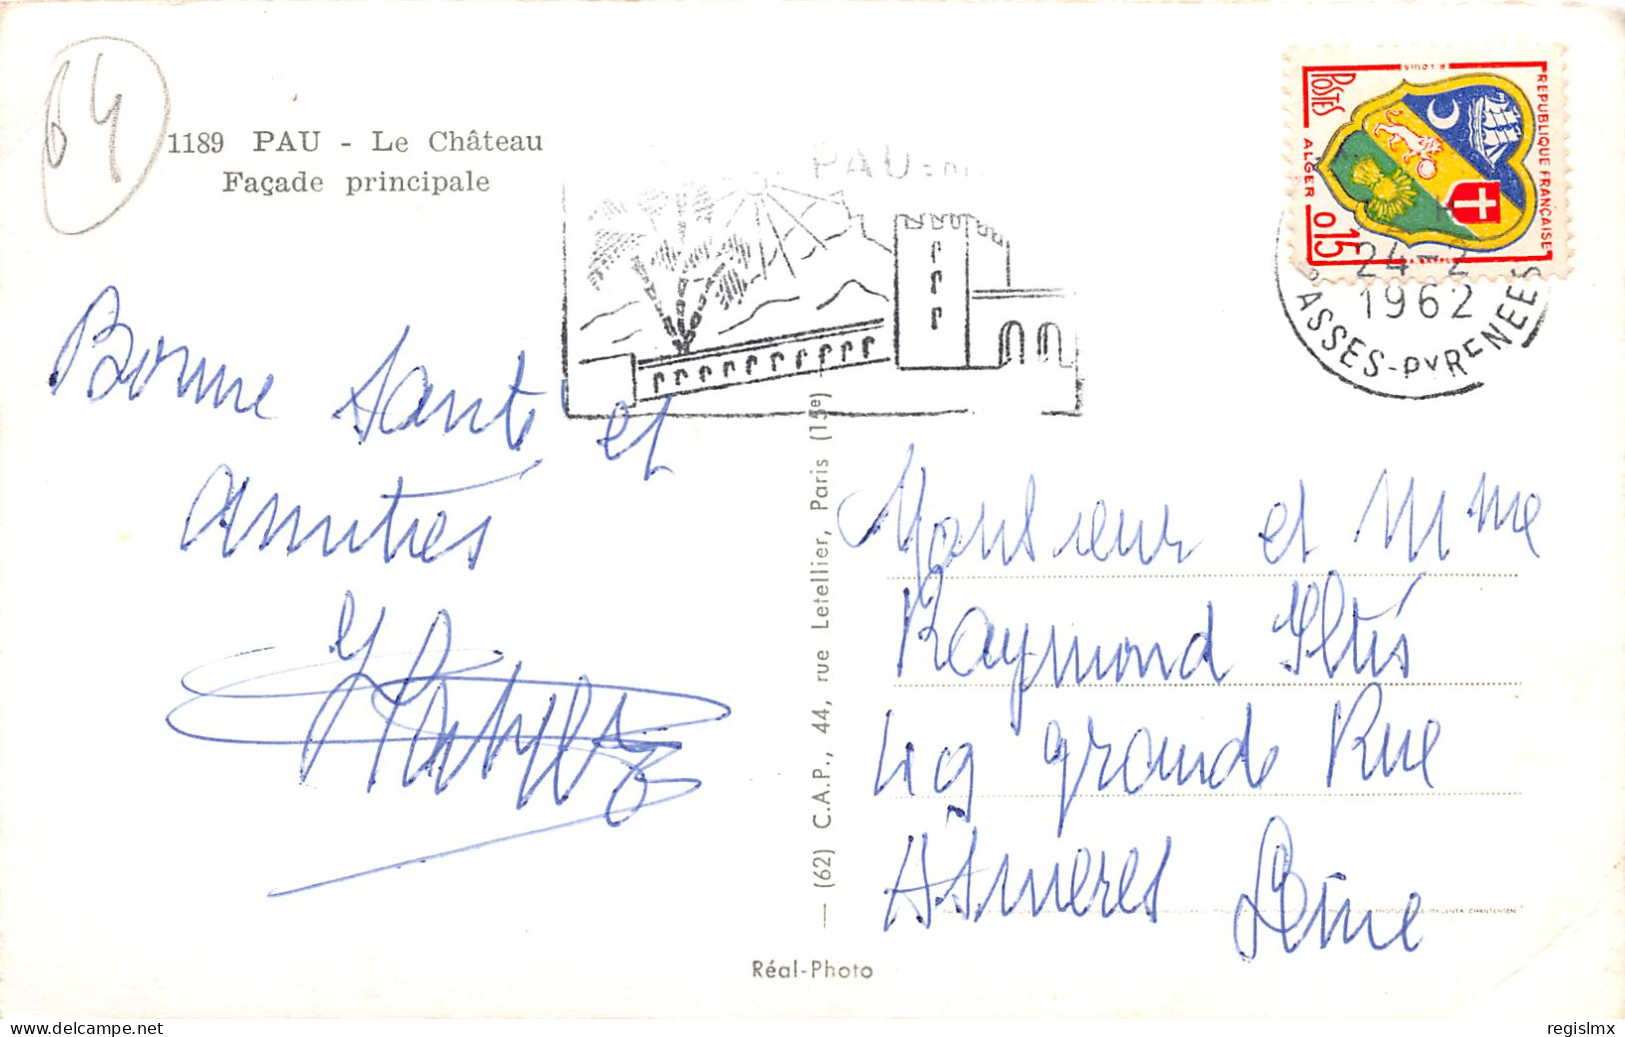 64
1189 PAU - Le Château
Façade principale
PAU
POSTES
R. LOUIS
REPUBLIQUE FRANÇAISE
ALGER
0,15
24-2
1962
BASSES-PYRENEES
Bonne Santé et
Amitiés
— (62) C.A.P., 44, rue Letellier, Paris (15e) —
Monsieur et Mme
Raymond Iltis
49 grande Rue
Asnieres Seine
Réal-Photo
regislmx